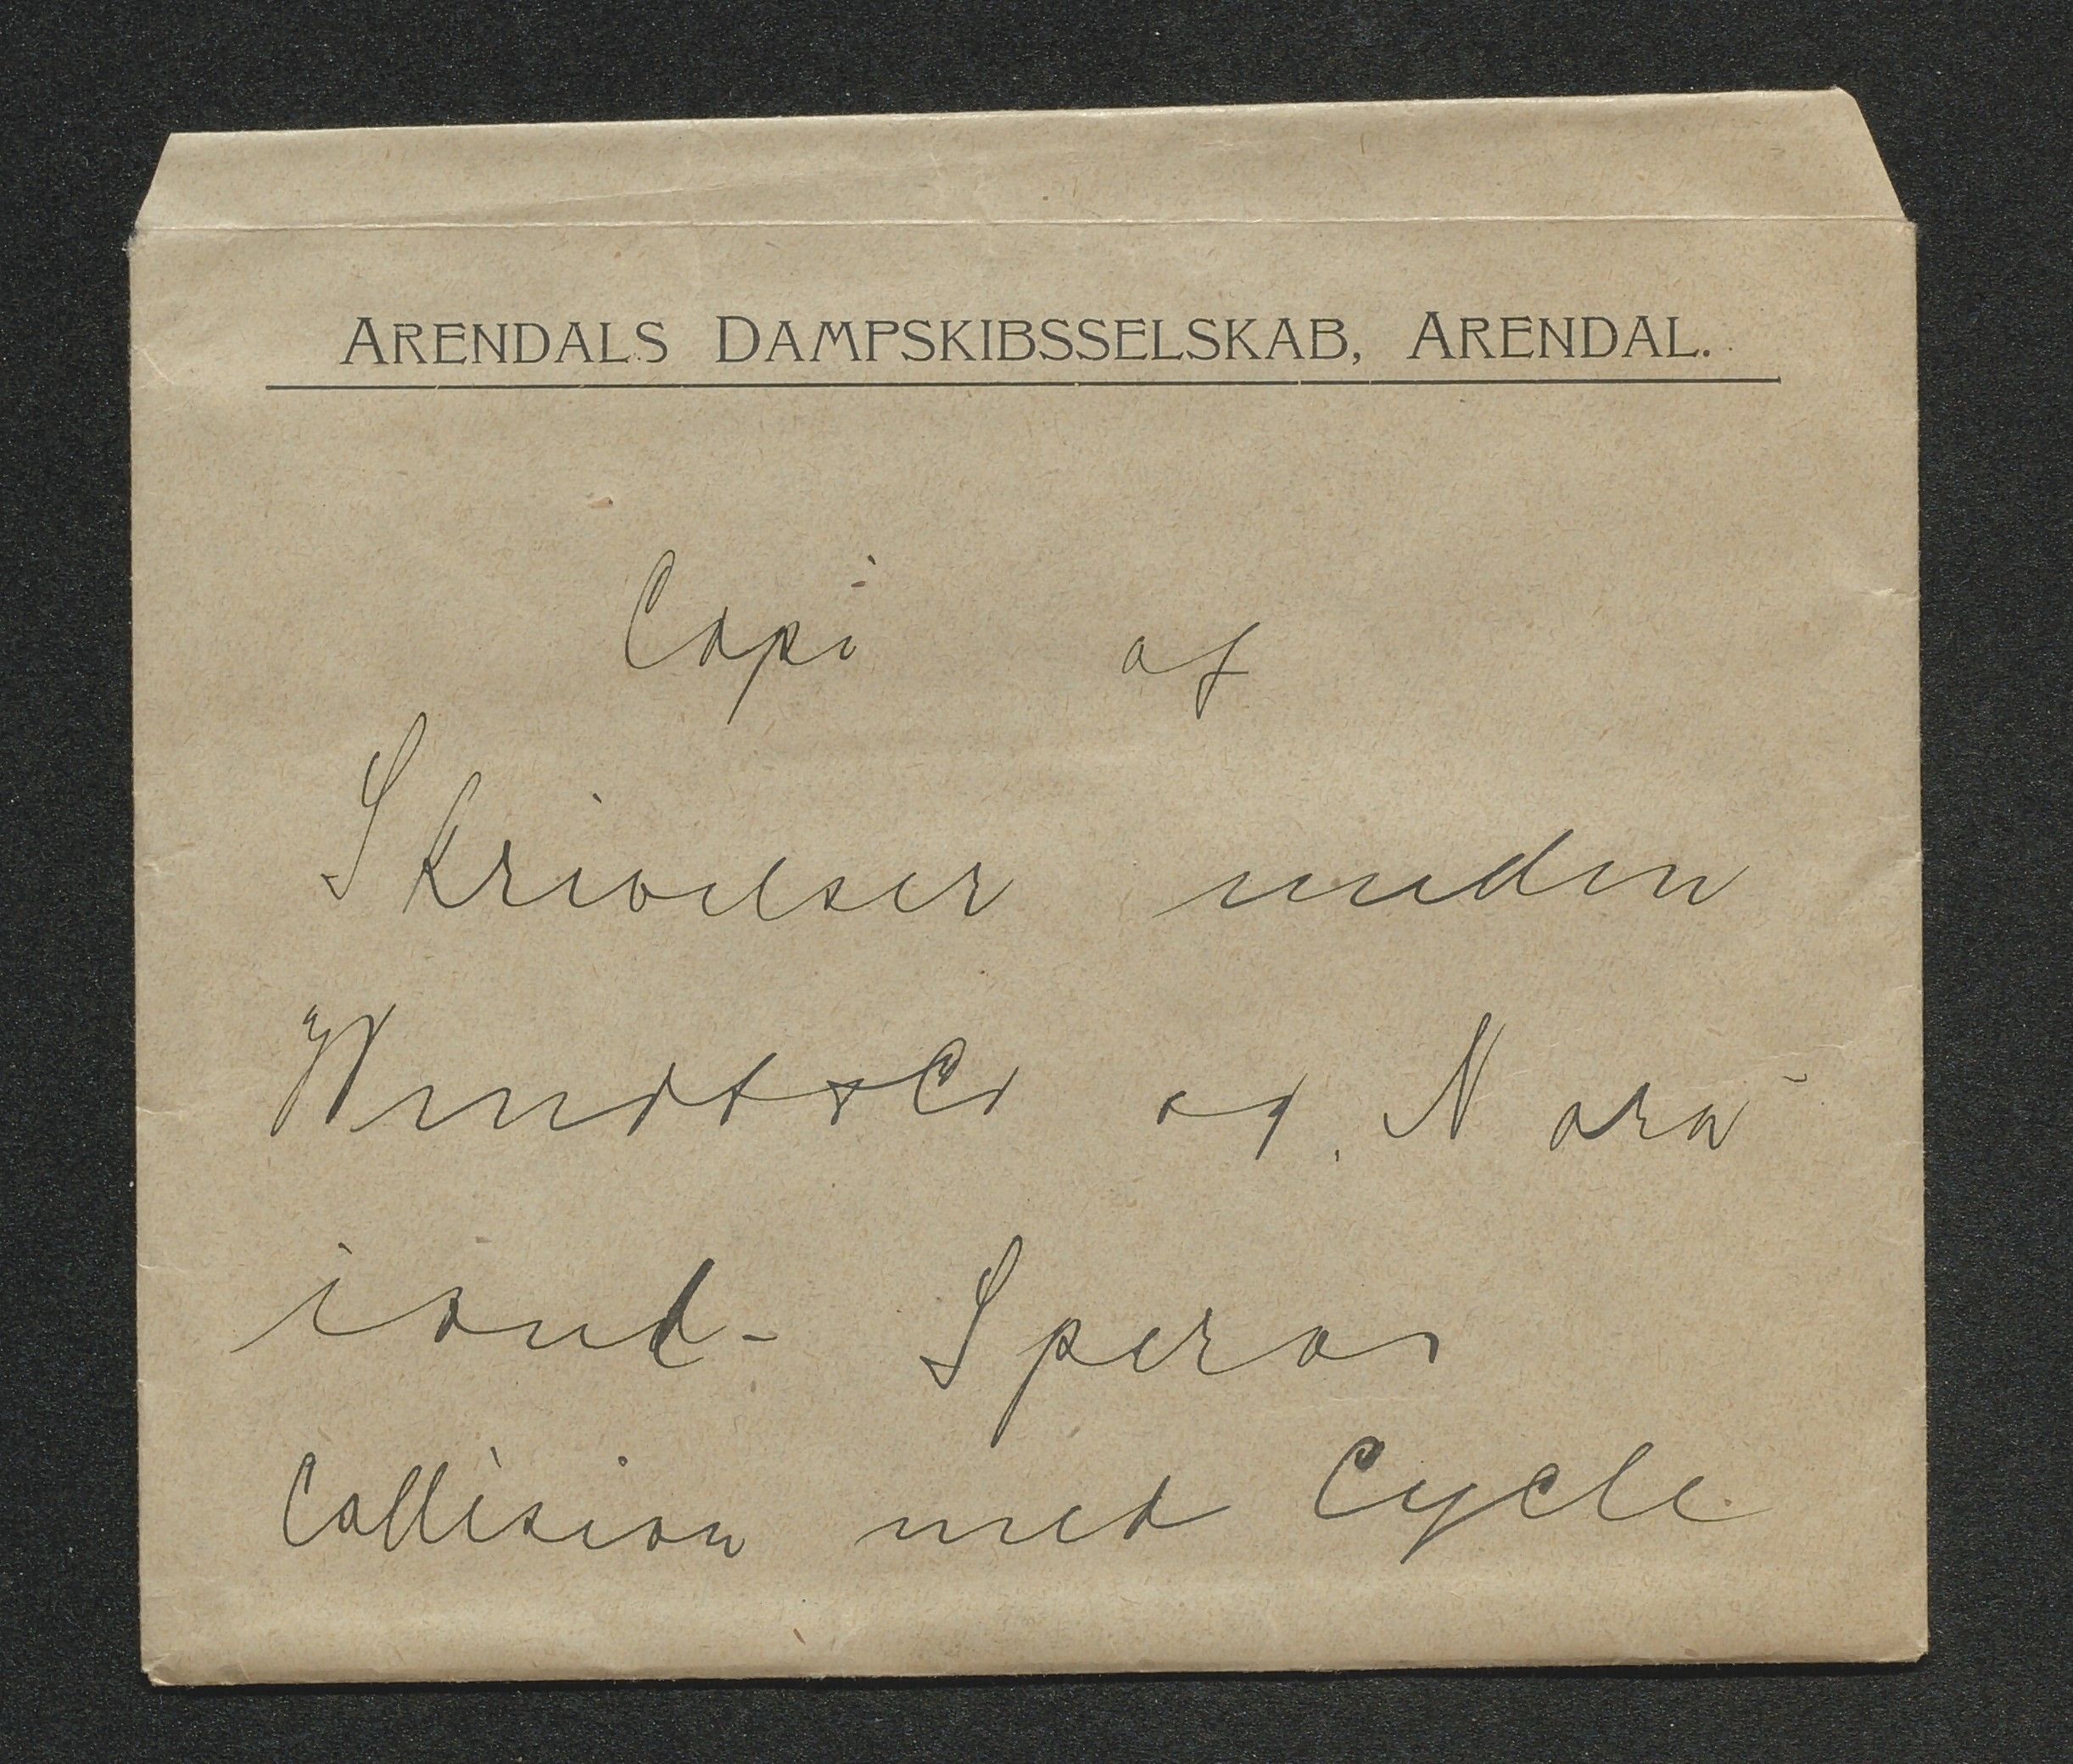 ARENDALS DAMPSKIBSSELSKAB, ARENDAL.
Copi af
Skrivelser
Wendt & Co og
Speros
Collision med Cycle